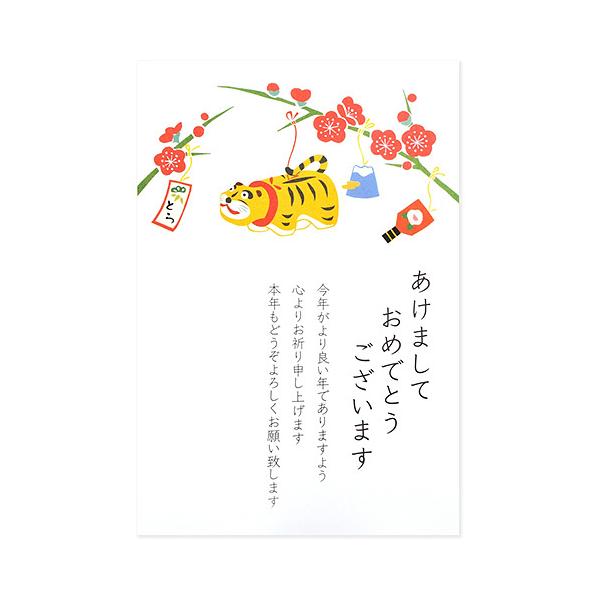 あけまして
おめでとう
ございます
今年がより良い年でありますよう
心よりお祈り申し上げます
本年もどうぞよろしくお願い致します
とら